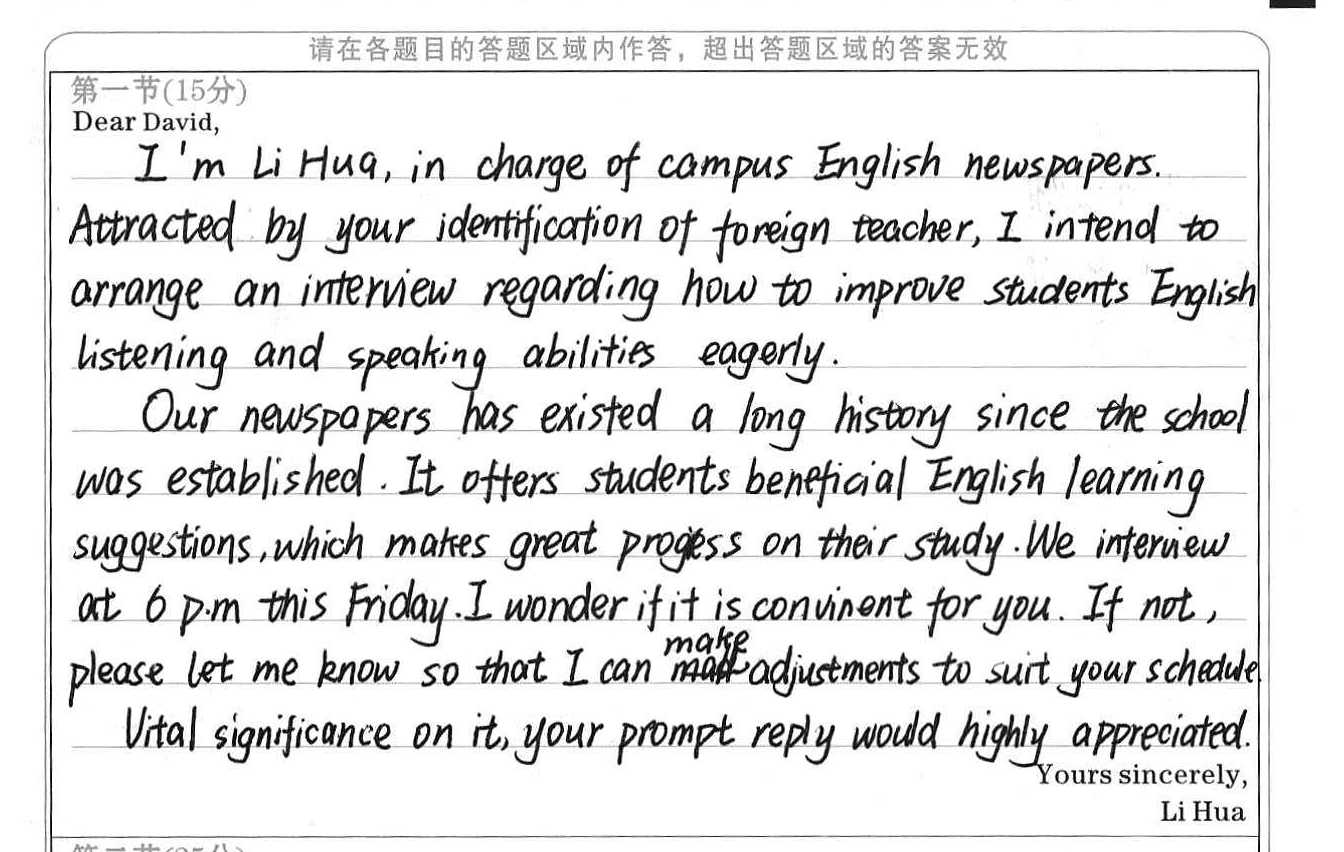 请在各题目的答题区域内作答，超出答题区域的答案无效
第一节(15分)
Dear David,
I'm Li Hua, in charge of campus English newspapers.
Attracted by your identification of foreign teacher, I intend to
arrange an interview regarding how to improve students English
listening and speaking abilities eagerly.
Our newspapers has existed a long history since the school
was established. It offers students beneficial English learning
suggestions, which makes great progess on their study. We interview
at 6 p.m this Friday. I wonder if it is convinent for you. If not,
please let me know so that I can make adjustments to suit your schedule.
Vital significance on it, your prompt reply would highly appreciated.
Yours sincerely,
Li Hua